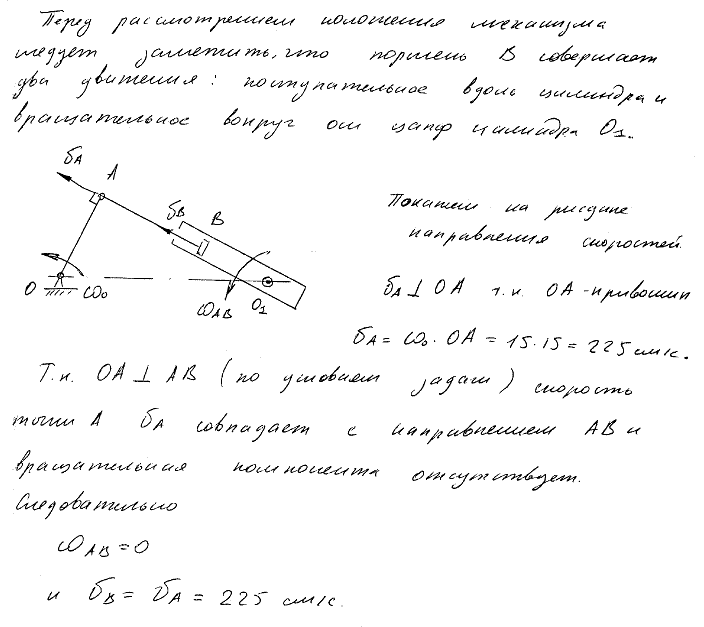 Перед рассмотрением положения механизма
следует заметить, что поршень В совершает
два движения: поступательное вдоль цилиндра и
вращательное вокруг оси цапф цилиндра O1.
υA
A
υB
B
O
ω0
ωAB
O1
Покажем на рисунке
направления скоростей.
υA ⊥ OA т.к. OA - кривошип
υA = ω0 · OA = 15 · 15 = 225 см/с.
Т.к. OA ⊥ AB (по условиям задачи) скорость
точки A υA совпадает с направлением AB и
вращательная компонента отсутствует.
Следовательно
ωAB = 0
и υB = υA = 225 см/с.